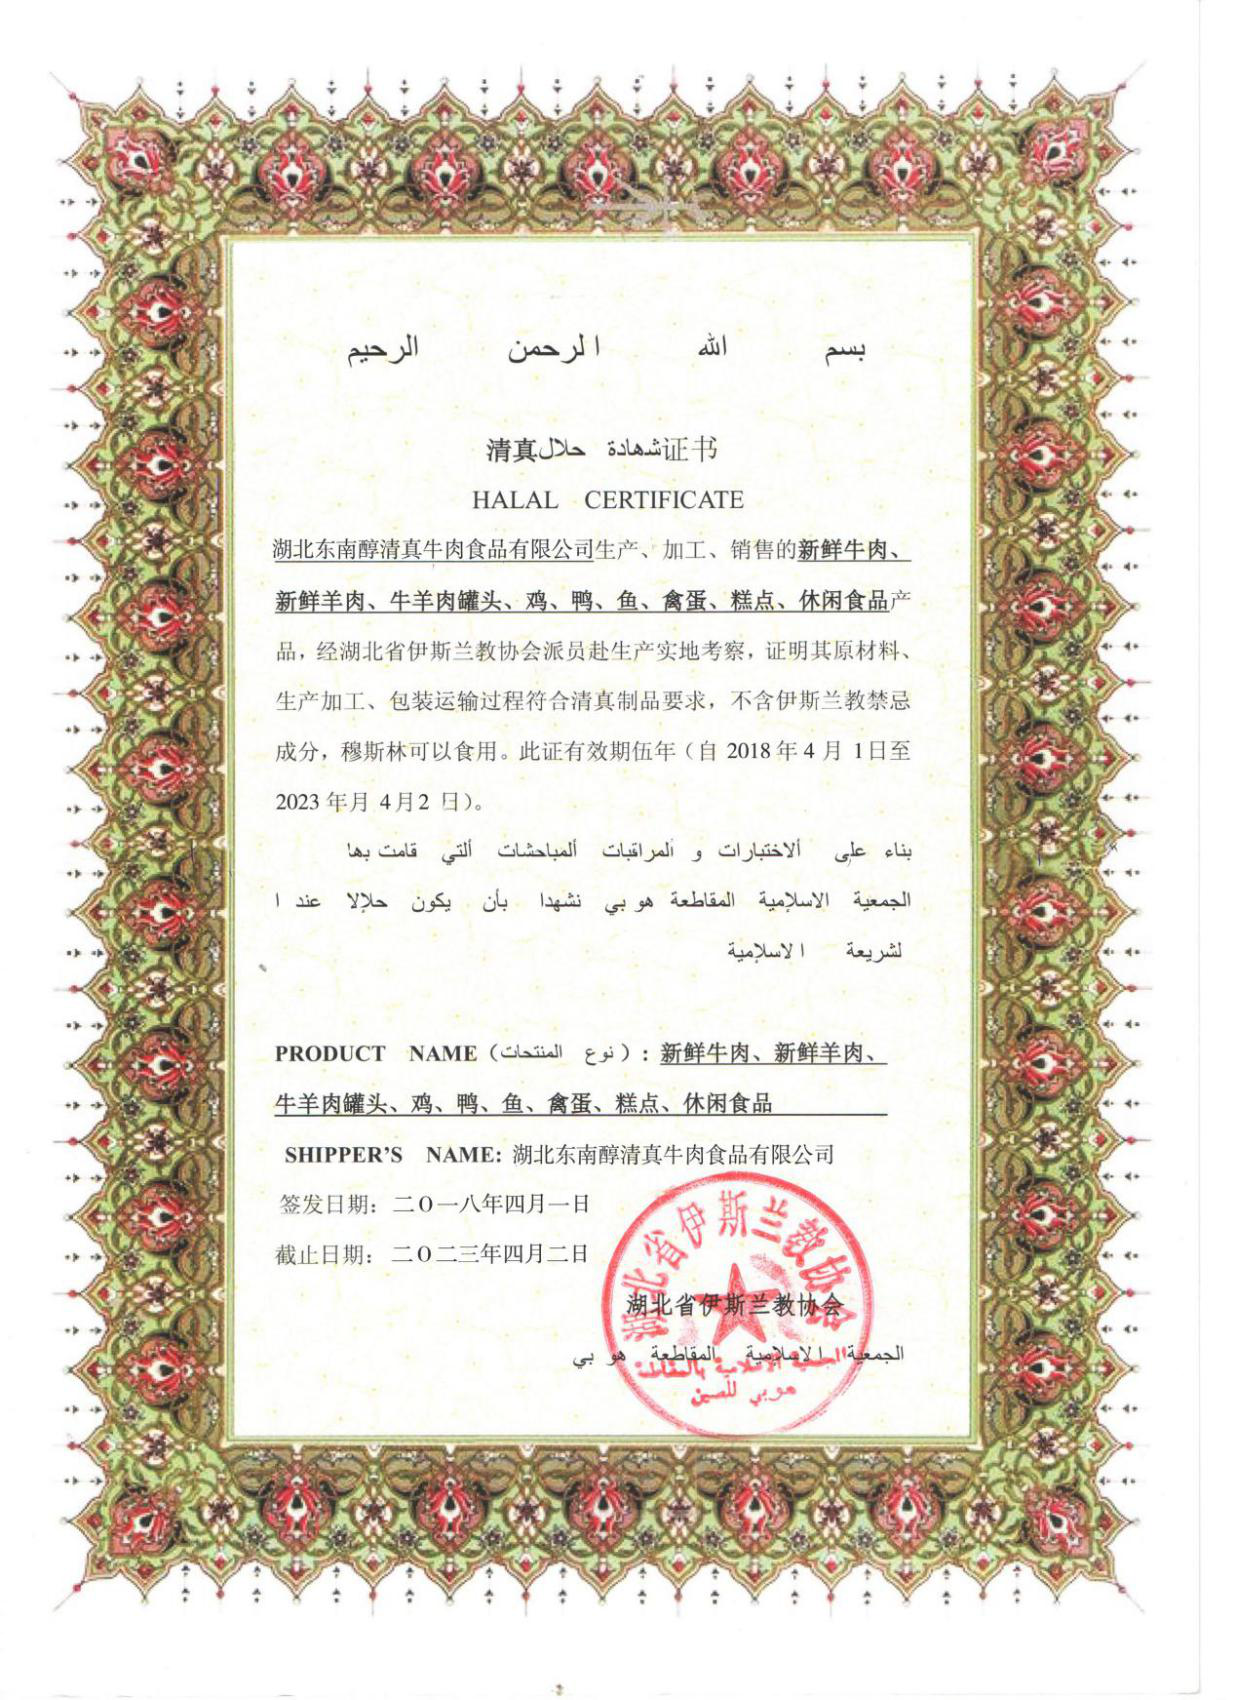 بسم الله الرحمن الرحيم
清真شهادة حلال证书
HALAL CERTIFICATE
湖北东南醇清真牛肉食品有限公司生产、加工、销售的新鲜牛肉、
新鲜羊肉、牛羊肉罐头、鸡、鸭、鱼、禽蛋、糕点、休闲食品产
品，经湖北省伊斯兰教协会派员赴生产实地考察，证明其原材料、
生产加工、包装运输过程符合清真制品要求，不含伊斯兰教禁忌
成分，穆斯林可以食用。此证有效期伍年（自 2018 年 4 月 1日至
2023 年月 4月2 日）。
بناء على ألاختبارات و ألمراقبات ألمباحشات ألتي قامت بها
الجمعية الاسلإمية المقاطعة هو بي نشهدا بأن يكون حلإلا عند ا
لشريعة ا لاسلإمية
PRODUCT NAME（نوع المنتحات）: 新鲜牛肉、新鲜羊肉、
牛羊肉罐头、鸡、鸭、鱼、禽蛋、糕点、休闲食品
SHIPPER'S NAME: 湖北东南醇清真牛肉食品有限公司
签发日期：二O一八年四月一日
截止日期：二O二三年四月二日
湖北省伊斯兰教协会
湖北省伊斯兰教协会
الجمعية الاسلإمية المقاطعة هو بي
الجمعية الاسلامية بالمقاطعة
هوبي للصين